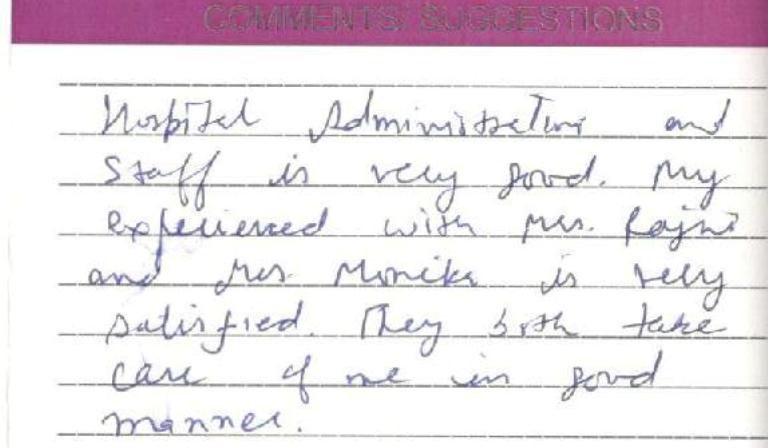 COMMENTS/ SUGGESTIONS
Hospital Administration and
Staff is very good. My
experienced with Mrs. Rajni
and Mrs Monika is very
satisfied. They both take
care of me in good
manner.